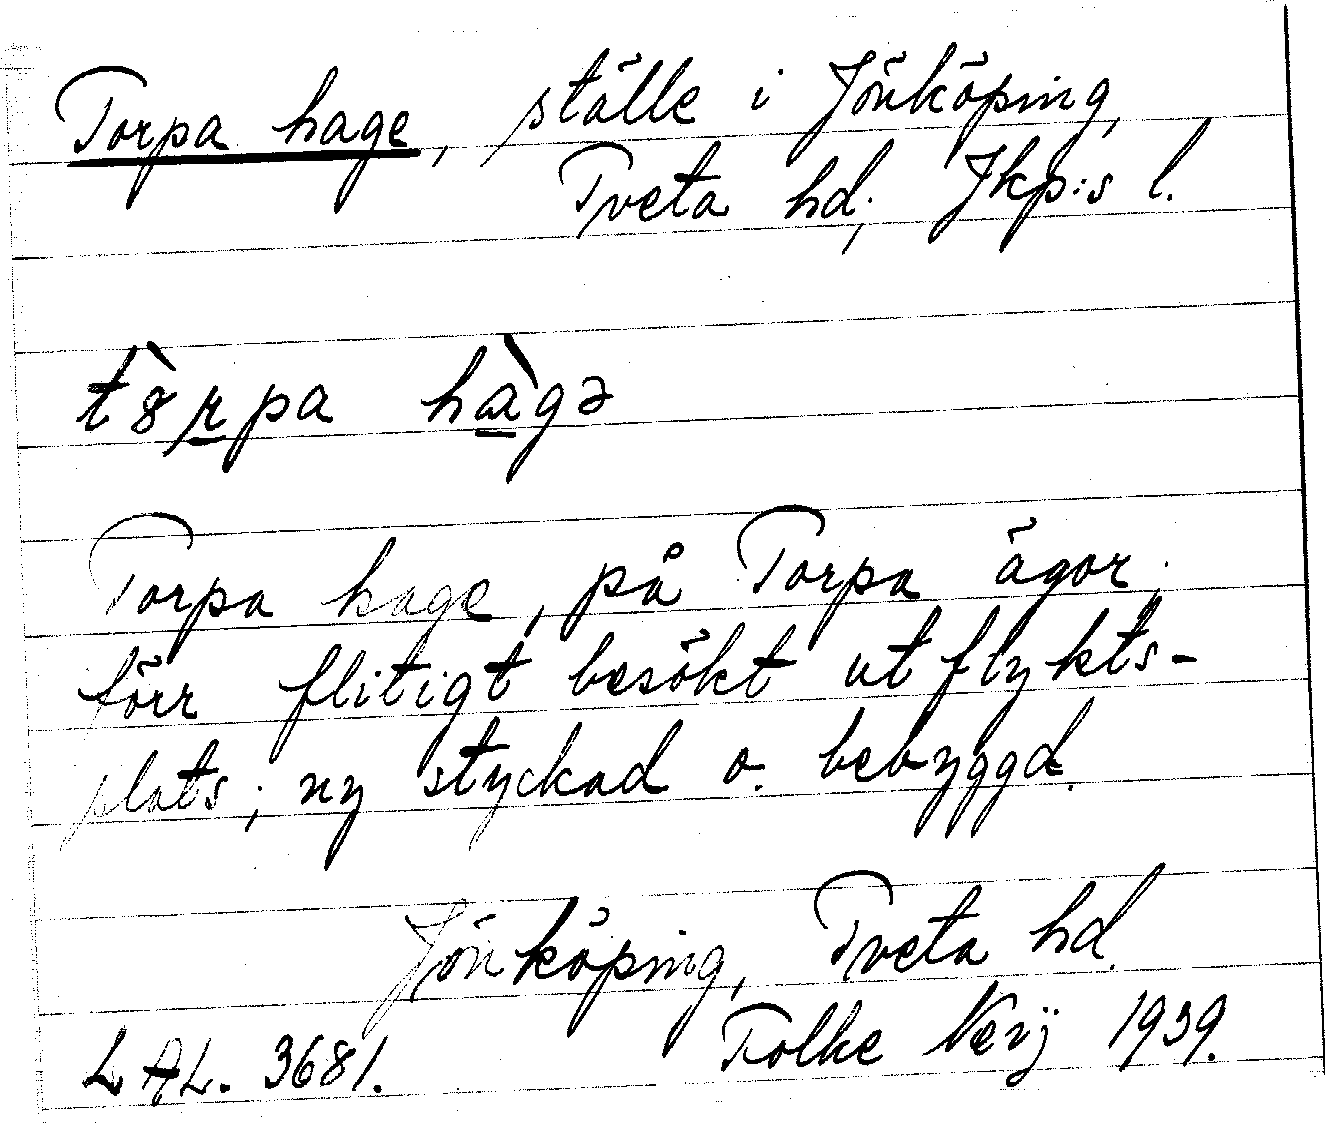 Torpa hage, ställe i Jönköping,
Tveta hd, Jkp:s l.
tò̤rpa hàgə
Torpa hage, på Torpa ägor.
förr flitigt besökt utflykts-
plats; ny styckad o. bebyggd.
Jönköping, Tveta hd.
L AL. 3681. Folke 1939.